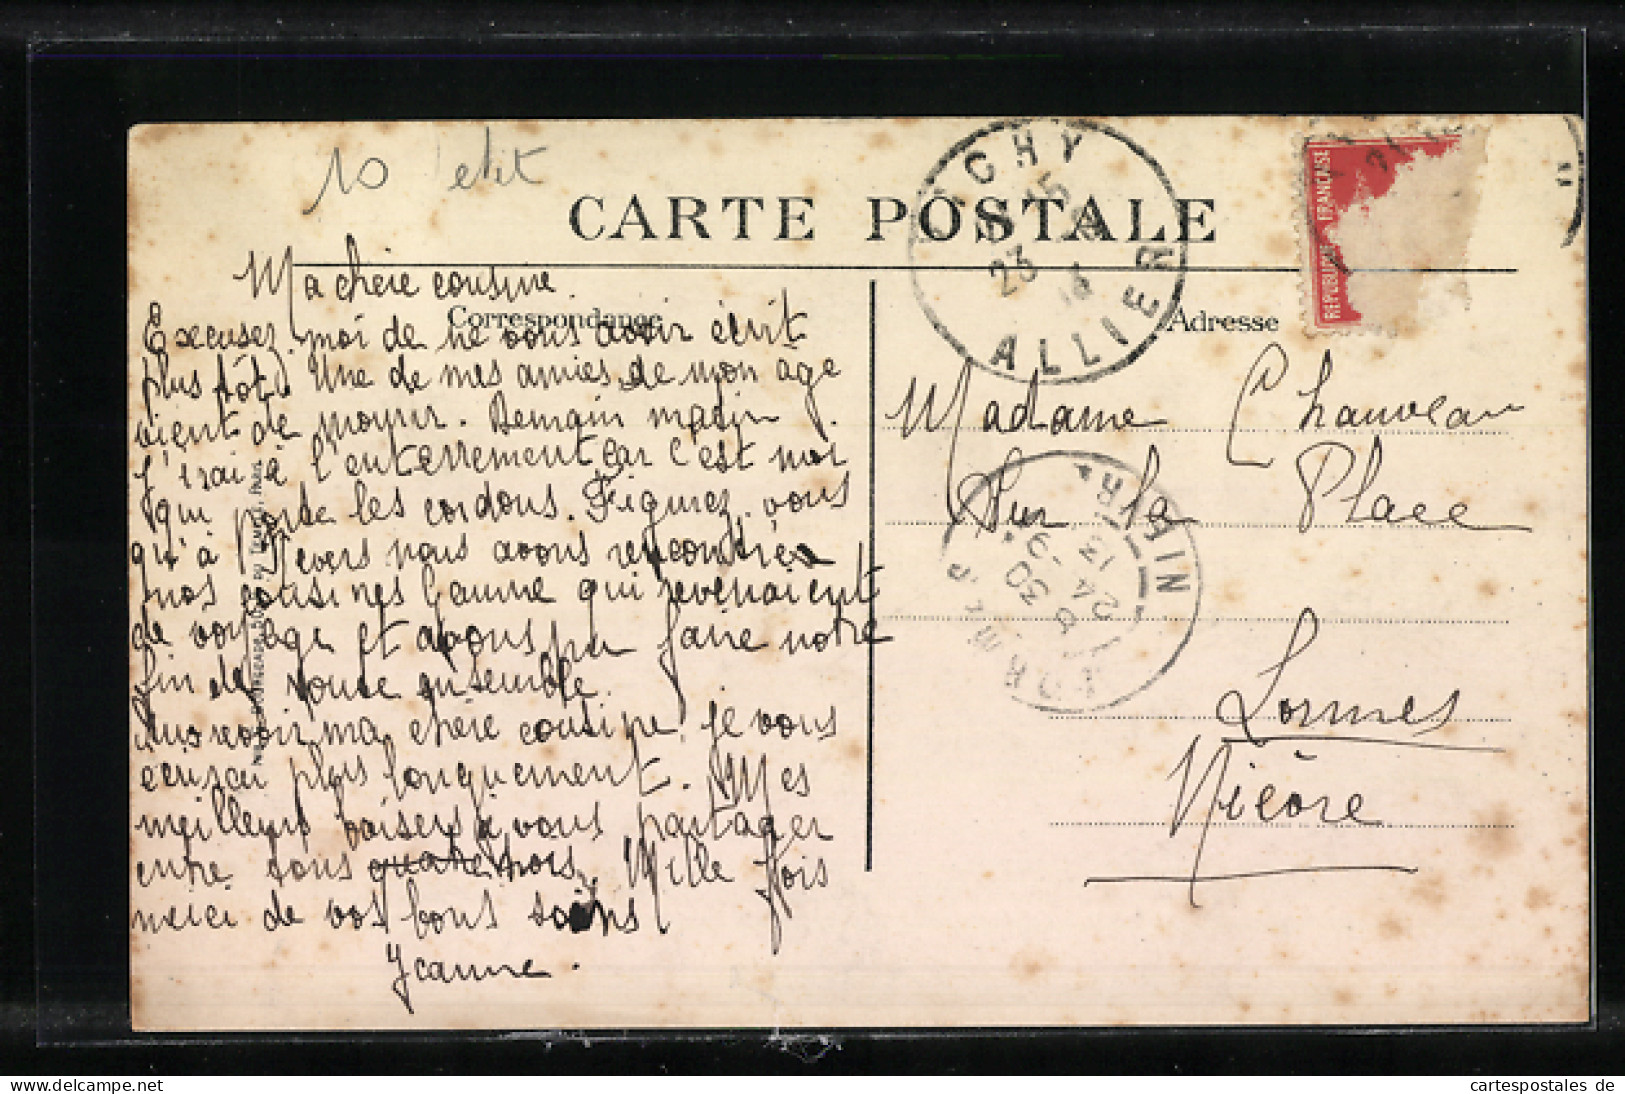 10 Petit
CARTE POSTALE
VICHY
ALLIER
REPUBLIQUE FRANÇAISE
Correspondance
Adresse
Ma chère cousine
Excusez moi de ne vous avoir écrit
plus tôt. Une de mes amies de mon âge
vient de mourir. Demain matin
j'irai à l'enterrement car c'est moi
qui porte les cordons. Figurez-vous
qu'à Nevers nous avons rencontré
nos cousines qui revenaient
de voyage et avons pu faire notre
fin de route ensemble.
Au revoir ma chère cousine je vous
écrirai plus longuement. Mes
meilleurs baisers à vous partager
entre tous trois. Mille fois
merci de vos bons soins
Jeanne.
Madame Chauveau
Sur la Place
Lormes
Nièvre
LORMES
24
13
cartespostales.de